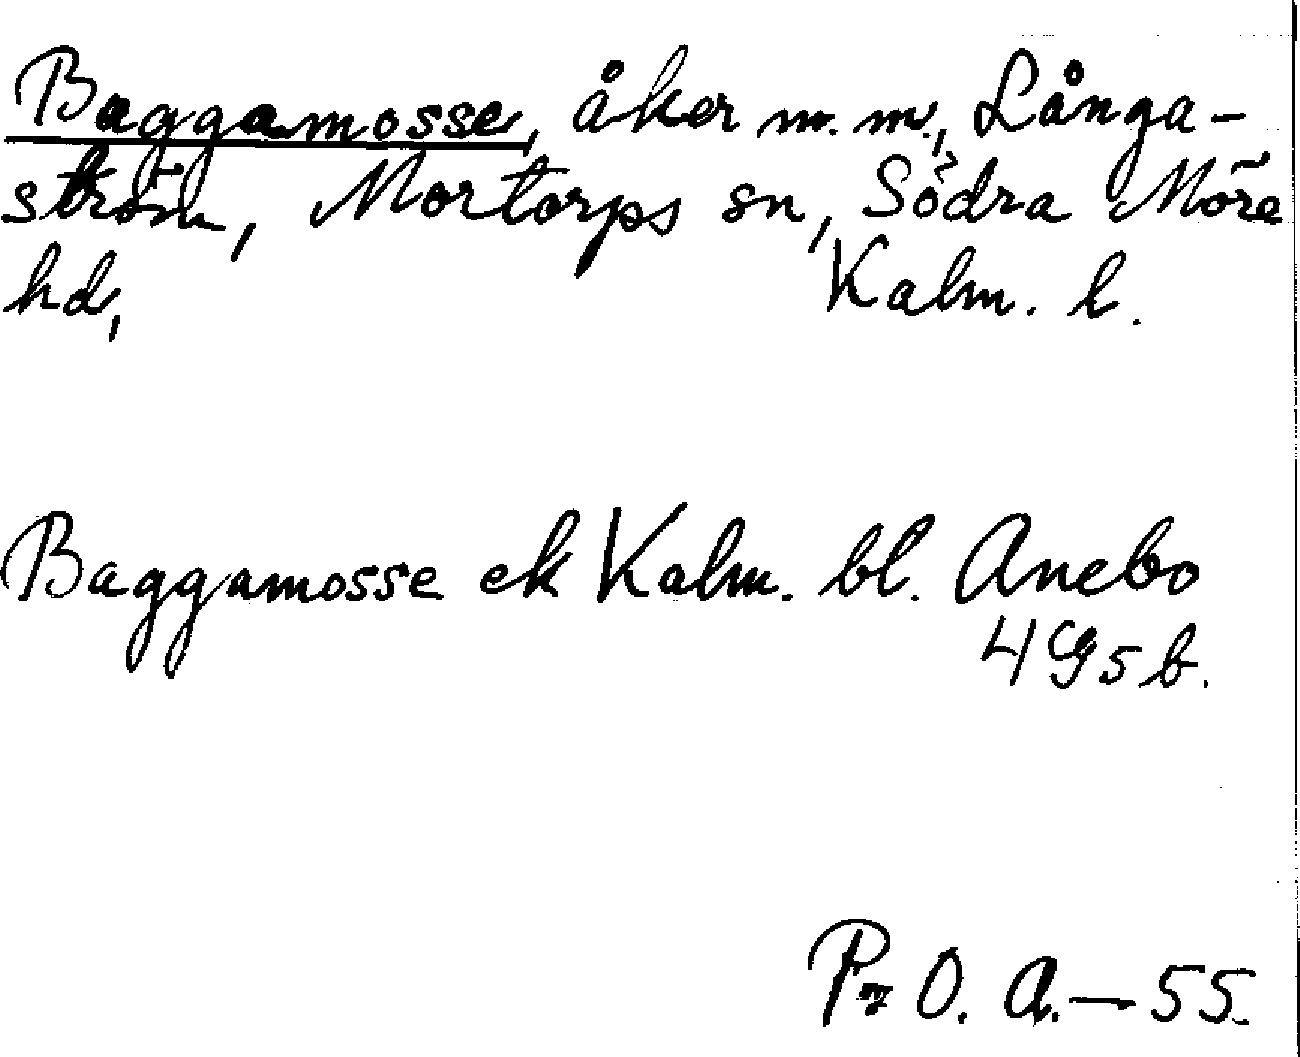 Baggamosse, åker m.m., Långa-
ström, Mortorps sn, Södra Möre
hd, Kalm. l.
Baggamosse ek Kalm. bl. Anebo
4G5b.
P-O. A.—55